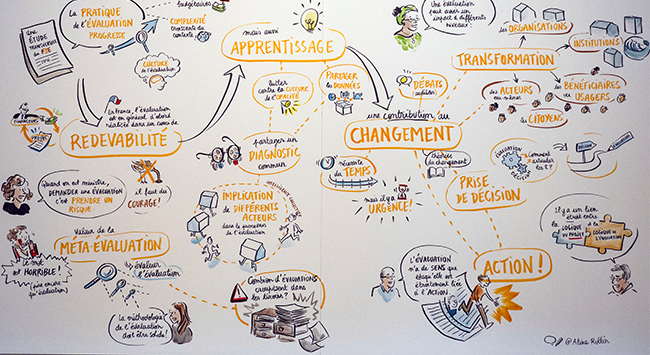 budgétaires
La PRATIQUE
de l'ÉVALUATION
PROGRESSE
COMPLEXITÉ
croissante du
contexte
UNE
ÉTUDE
TRANSVERSALE
du F3E
CULTURE
de l'évaluation
En France, l'évaluation
est en général d'abord
réalisée dans un souci de
REDEVABILITÉ
FINANCEURS
mais aussi
APPRENTISSAGE
lutter
contre la CULTURE
de l'OPACITÉ
PARTAGER
les DONNÉES
partager un
DIAGNOSTIC
commun
Quand on est ministre,
DEMANDER une ÉVALUATION
c'est PRENDRE un
RISQUE.
il faut du
COURAGE!
IMPLICATION
de DIFFÉRENTS
ACTEURS
dans le processus
de l'évaluation
INTELLIGENCE COLLECTIVE
valeur de la
META-EVALUATION
Le mot
est HORRIBLE!
(pire encore
qu'évaluation)
évaluer
l'évaluation
La méthodologie
de l'évaluation
doit être solide!
Combien d'ÉVALUATIONS
croupissent dans
les tiroirs?
Une évaluation
peut avoir un
impact à différents
niveaux:
DÉBATS
une contribution au
CHANGEMENT
nécessite
du TEMPS
mais il y a
URGENCE!
théories
du changement
TRANSFORMATION
des ORGANISATIONS
des INSTITUTIONS
des ACTEURS
eux-mêmes
des BÉNÉFICIAIRES
ou USAGERS
des CITOYENS
PRISE
de DÉCISION
ÉVALUATION
DÉCISION
Comment
s'articulent
les 2?
ACTION!
L'ÉVALUATION
n'a de SENS que
lorsqu'elle est
étroitement liée
à l'ACTION
Il y a un lien
étroit entre
la
LOGIQUE
du PROJET
à la
LOGIQUE de
l'ÉVALUATION